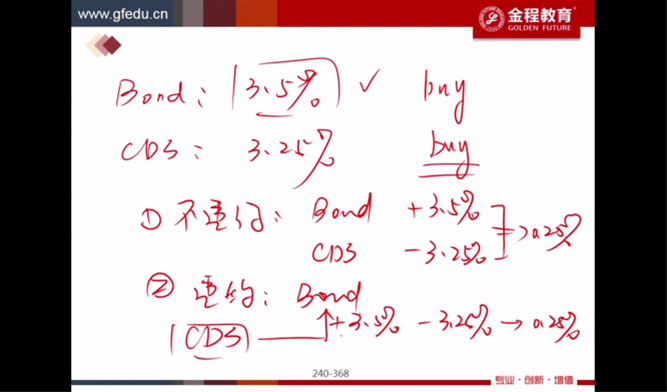 www.gfedu.cn
金程教育
GOLDEN FUTURE
Bond: 3.5% ✓ buy
CDS: 3.25% buy
① 不违约: Bond +3.5%
CDS -3.25% → 0.25%
② 违约: Bond
CDS +3.5% -3.25% → 0.25%
240-368
专业·创新·增值